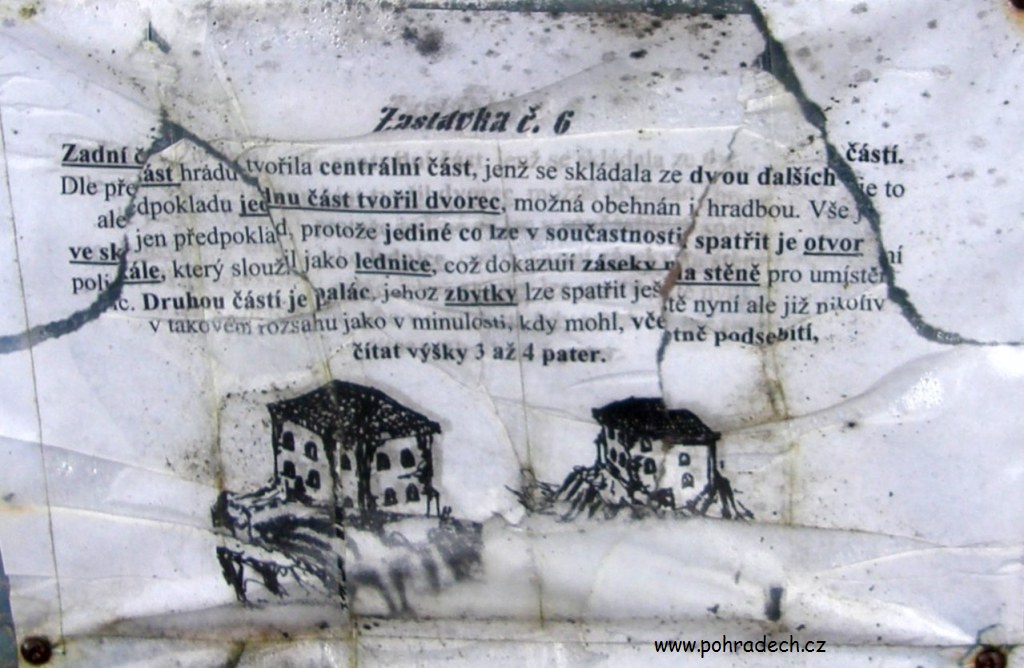 Zastávka č. 6
Zadní část hrádu tvořila centrální část, jenž se skládala ze dvou ďalších částí.
Dle předpokladu jednu část tvořil dvorec, možná obehnán i hradbou. Vše je to
ale jen předpoklad, protože jediné co lze v součastnosti spatřit je otvor
ve skále, který sloužil jako lednice, což dokazují záseky na stěně pro umístění
polic. Druhou částí je palác, jehož zbytky lze spatřit ještě nyní ale již nikoliv
v takovém rozsahu jako v minulosti, kdy mohl, včetně podsebití,
čítat výšky 3 až 4 pater.
www.pohradech.cz